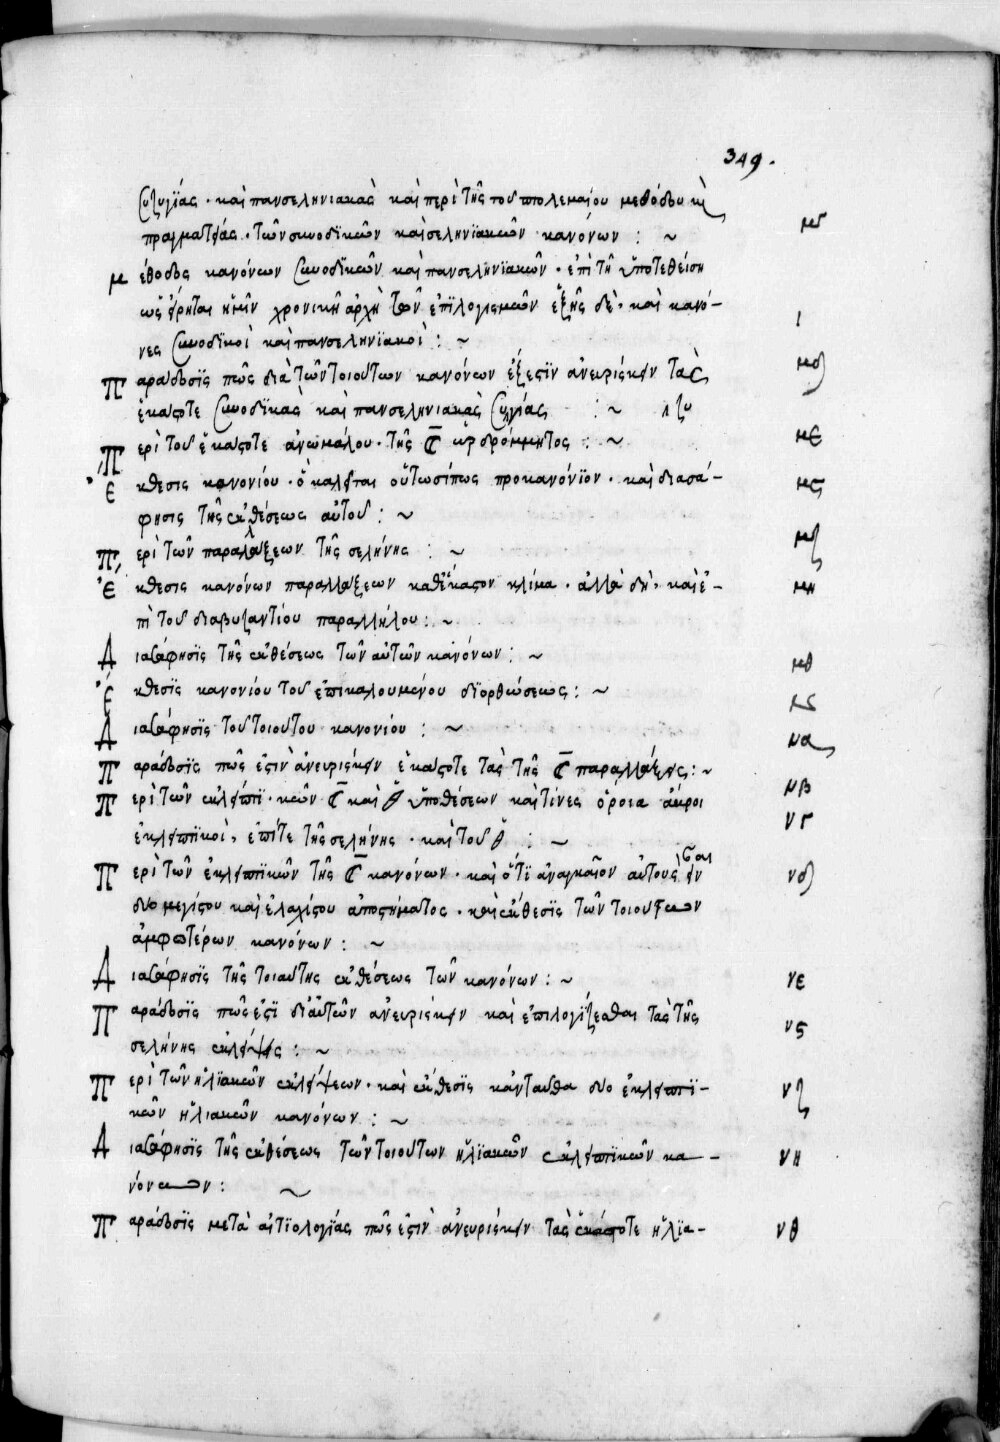 349.
συζυγίας · καὶ πανσεληνιακὰς καὶ περὶ τῆς τοῦ πτολεμαίου μεθόδου καὶ
πραγματείας · τῶν συνοδϊκῶν καὶ σεληνϊακῶν κανόνων : ~ μγ
μέθοδος κανόνων συνοδϊκῶν καὶ πανσεληνϊακῶν · ἐπὶ τῆ ὑποτεθείση
ὡς εἴρηται ἡμῖν χρονικῆ ἀρχῆ τῶν ἐπϊλογισμῶν ἑξῆς δὲ · καὶ κανό–
νες συνοδϊκοὶ καὶ πανσεληνϊακοὶ : ~
παράδοσϊς πῶς διὰ τῶν τοιούτων κανόνων ἔξεστϊν ἀνευρίσκειν τὰς μδ
ἑκάστοτε συνοδϊκὰς καὶ πανσεληνιακὰς συζυγίας : ~
περὶ τοῦ ἑκάστοτε ἀνωμάλου · τῆς ☾ δρομήματος : ~ με
ἔκθεσις κανονίου · ὃ καλεῖται οὕτωσίπως προκανόνϊον · καὶ διασά–
φησις τῆς ἐκθέσεως αὐτοῦ : ~ μς
περὶ τῶν παραλλάξεων τῆς σελήνης : ~ μζ
ἔκθεσις κανόνων παραλλάξεων καθ' ἕκαστον κλίμα · ἀλλὰ δὴ · καὶ ἐ– μη
πὶ τοῦ διαβυζαντίου παραλλήλου : ~
Διασάφησϊς τῆς ἐκθέσεως τῶν αὐτῶν κανόνων : ~ μθ
ἔκθεσϊς κανονίου τοῦ ἐπικαλουμένου διορθώσεως : ~ ν
Διασάφησϊς τοῦ τοιούτου κανονίου : ~ να
παράδοσϊς πῶς ἐστὶν ἀνευρίσκειν ἑκάστοτε τὰς τῆς ☾ παραλλάξεις : ~ νβ
περὶ τῶν ἐκλειπτϊκῶν ☾ καὶ ὑποθέσεων καὶ τίνες ὅροι ἄκροι νγ
ἐκλειπτϊκοὶ, ἐπίτε τῆς σελήνης · καὶ τοῦ : ~
περὶ τῶν ἐκλειπτϊκῶν τῆς ☾ κανόνων · καὶ ὅτϊ ἀναγκαῖον αὐτοὺς εἶναι νδ
δυο μεγίστου καὶ ἐλαχίστου ἀποστήματος · καὶ ἔκθεσϊς τῶν τοιούτων
ἀμφοτέρων κανόνων : ~
Διασάφησϊς τῆς τοιαύτης ἐκθέσεως τῶν κανόνων : ~ νε
παράδοσϊς πῶς ἐστϊ δι' αὐτῶν ἀνευρίσκειν καὶ ἐπιλογίζεσθαι τὰς τῆς νς
σελήνης ἐκλείψεις : ~
περὶ τῶν ἡλϊακῶν ἐκλείψεων · καὶ ἔκθεσϊς κἀνταῦθα δυο ἐκλειπτϊ– νζ
κῶν ἡλιακῶν κανόνων : ~
Διασάφησϊς τῆς ἐκθέσεως τῶν τοιούτων ἡλϊακῶν ἐκλειπτϊκῶν κα– νη
νόνων : ~
παράδοσϊς μετὰ αἰτϊολογίας πῶς ἐστὶν ἀνευρίσκειν τὰς ἑκάστοτε ἡλϊα– νθ